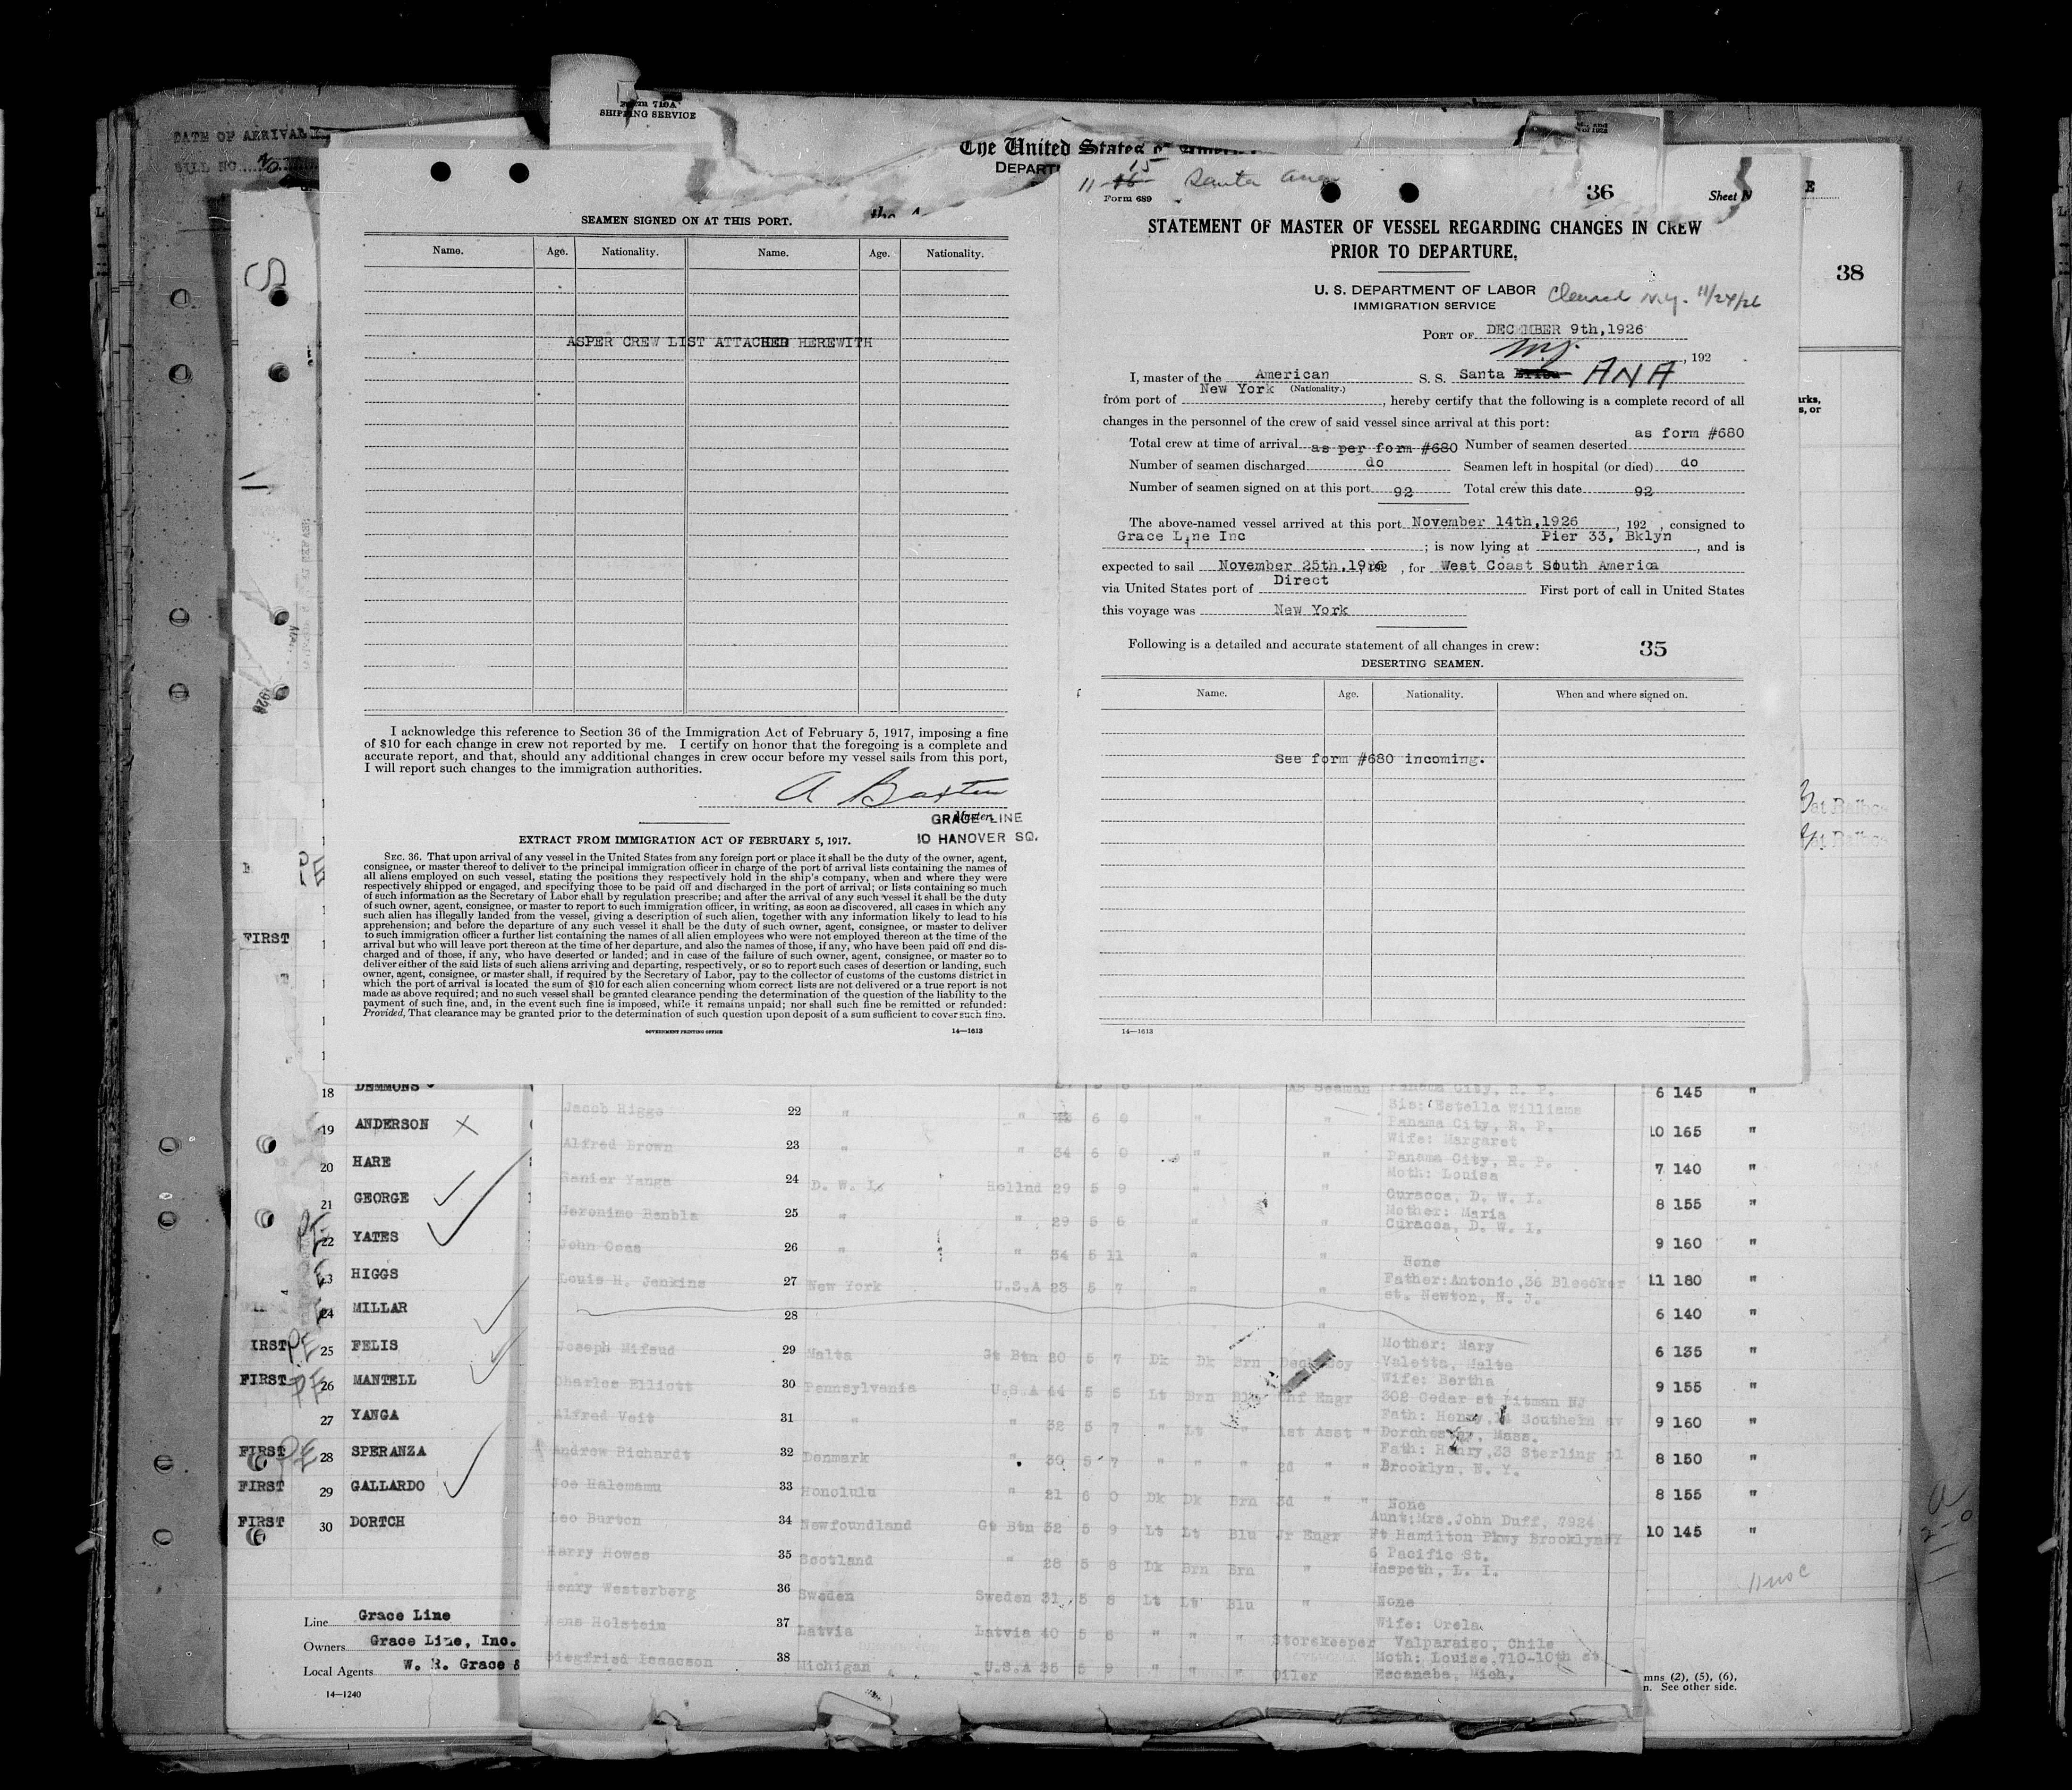 DATE OF ARRIVAL
BILL NO.
Form 710A
SHIPPING SERVICE
The United States
SEAMEN SIGNED ON AT THIS PORT.
Name. Age. Nationality. Name. Age. Nationality.
ASPER CREW LIST ATTACHED HEREWITH
I acknowledge this reference to Section 36 of the Immigration Act of February 5, 1917, imposing a fine
of $10 for each change in crew not reported by me. I certify on honor that the foregoing is a complete and
accurate report, and that, should any additional changes in crew occur before my vessel sails from this port,
I will report such changes to the immigration authorities.
A Baxter
Master.
GRACE LINE
10 HANOVER SQ.
EXTRACT FROM IMMIGRATION ACT OF FEBRUARY 5, 1917.
SEC. 36. That upon arrival of any vessel in the United States from any foreign port or place it shall be the duty of the owner, agent,
consignee, or master thereof to deliver to the principal immigration officer in charge of the port of arrival lists containing the names of
all aliens employed on such vessel, stating the positions they respectively hold in the ship's company, when and where they were
respectively shipped or engaged, and specifying those to be paid off and discharged in the port of arrival; or lists containing so much
of such information as the Secretary of Labor shall by regulation prescribe; and after the arrival of any such vessel it shall be the duty
of such owner, agent, consignee, or master to report to such immigration officer, in writing, as soon as discovered, all cases in which any
such alien has illegally landed from the vessel, giving a description of such alien, together with any information likely to lead to his
apprehension; and before the departure of any such vessel it shall be the duty of such owner, agent, consignee, or master to deliver
to such immigration officer a further list containing the names of all alien employees who were not employed thereon at the time of the
arrival but who will leave port thereon at the time of her departure, and also the names of those, if any, who have been paid off and dis-
charged and of those, if any, who have deserted or landed; and in case of the failure of such owner, agent, consignee, or master so to
deliver either of the said lists of such aliens arriving and departing, respectively, or so to report such cases of desertion or landing, such
owner, agent, consignee, or master shall, if required by the Secretary of Labor, pay to the collector of customs of the customs district in
which the port of arrival is located the sum of $10 for each alien concerning whom correct lists are not delivered or a true report is not
made as above required; and no such vessel shall be granted clearance pending the determination of the question of the liability to the
payment of such fine, and, in the event such fine is imposed, while it remains unpaid; nor shall such fine be remitted or refunded:
Provided, That clearance may be granted prior to the determination of such question upon deposit of a sum sufficient to cover such fine.
GOVERNMENT PRINTING OFFICE 14—1613
11-16 15 Santa Ana
Form 689
36 Sheet N
STATEMENT OF MASTER OF VESSEL REGARDING CHANGES IN CREW
PRIOR TO DEPARTURE.
U. S. DEPARTMENT OF LABOR
IMMIGRATION SERVICE
Cleared N.Y. 11/24/26
PORT OF DECEMBER 9th,1926
N.Y. , 192
I, master of the American S. S. Santa ANA
(Nationality.)
from port of New York , hereby certify that the following is a complete record of all
changes in the personnel of the crew of said vessel since arrival at this port:
Total crew at time of arrival as per form #680 Number of seamen deserted as form #680
Number of seamen discharged do Seamen left in hospital (or died) do
Number of seamen signed on at this port 92 Total crew this date 92
The above-named vessel arrived at this port November 14th,1926 , 192 , consigned to
Grace Line Inc ; is now lying at Pier 33, Bklyn , and is
expected to sail November 25th,1926 192 , for West Coast South America
via United States port of Direct First port of call in United States
this voyage was New York
Following is a detailed and accurate statement of all changes in crew: 35
DESERTING SEAMEN.
Name. Age. Nationality. When and where signed on.
See form #680 incoming.
14—1613
38
18 DEMMONS 6 145 "
19 ANDERSON 10 165 "
20 HARE 7 140 "
21 GEORGE 8 155 "
22 YATES 9 160 "
23 HIGGS 11 180 "
24 MILLAR 6 140 "
FIRST PE 25 FELIS 6 135 "
FIRST PE 26 MANTELL 9 155 "
27 YANGA 9 160 "
FIRST PE 28 SPERANZA 8 150 "
FIRST 29 GALLARDO 8 155 "
FIRST 30 DORTCH 10 145 "
AB Seaman Panama City, R. P.
Jacob Higgs 22 " " 6 0 " " Sis: Estella Williams
Panama City, R. P.
Alfred Brown 23 " " 34 6 0 " " Wife: Margaret
Panama City, R. P.
Ranier Yanga 24 D. W. I. Hollnd 29 5 9 " " Moth: Louisa
Curacoa, D. W. I.
Geronimo Benbla 25 " " 29 5 6 " " Mother: Maria
Curacoa, D. W. I.
John Coas 26 " " 34 5 11 " " None
Louis H. Jenkins 27 New York U.S.A 23 5 7 " " Father:Antonio,36 Bleecker
st. Newton, N. J.
28
Joseph Mifsud 29 Malta Gt Btn 20 5 7 Dk Dk Brn Deck Boy Mother: Mary
Valetta, Malta
Charles Elliott 30 Pennsylvania U.S.A 44 5 5 Lt Brn Blu Chf Engr Wife: Bertha
302 Cedar st Pitman NJ
Alfred Veit 31 " " 32 5 7 " Lt " 1st Asst " Fath: Henry,14 Southern av
Dorchester, Mass.
Andrew Richardt 32 Denmark " 30 5 7 " " " 2d " " Fath: Henry,33 Sterling pl
Brooklyn, N. Y.
Joe Halemamu 33 Honolulu " 21 6 0 Dk Dk Brn 3d " " None
Leo Burton 34 Newfoundland Gt Btn 32 5 9 Lt Lt Blu Jr Engr Aunt:Mrs.John Duff, 7924
Ft Hamilton Pkwy BrooklynNY
Harry Howes 35 Scotland " 28 5 8 Dk Brn Brn " 6 Pacific St.
Maspeth, L. I.
Henry Westerberg 36 Sweden Sweden 31 5 8 Lt Lt Blu " None
Hans Holstein 37 Latvia Latvia 40 5 6 " " " Storekeeper Wife: Orela
Valparaiso, Chile
Siegfried Isaacson 38 Michigan U.S.A 35 5 9 " " " Oiler Moth: Louise,710-10th st
Escanaba, Mich.
Line Grace Line
Owners Grace Line, Inc.
Local Agents W. R. Grace &
14—1240
mns (2), (5), (6),
n. See other side.